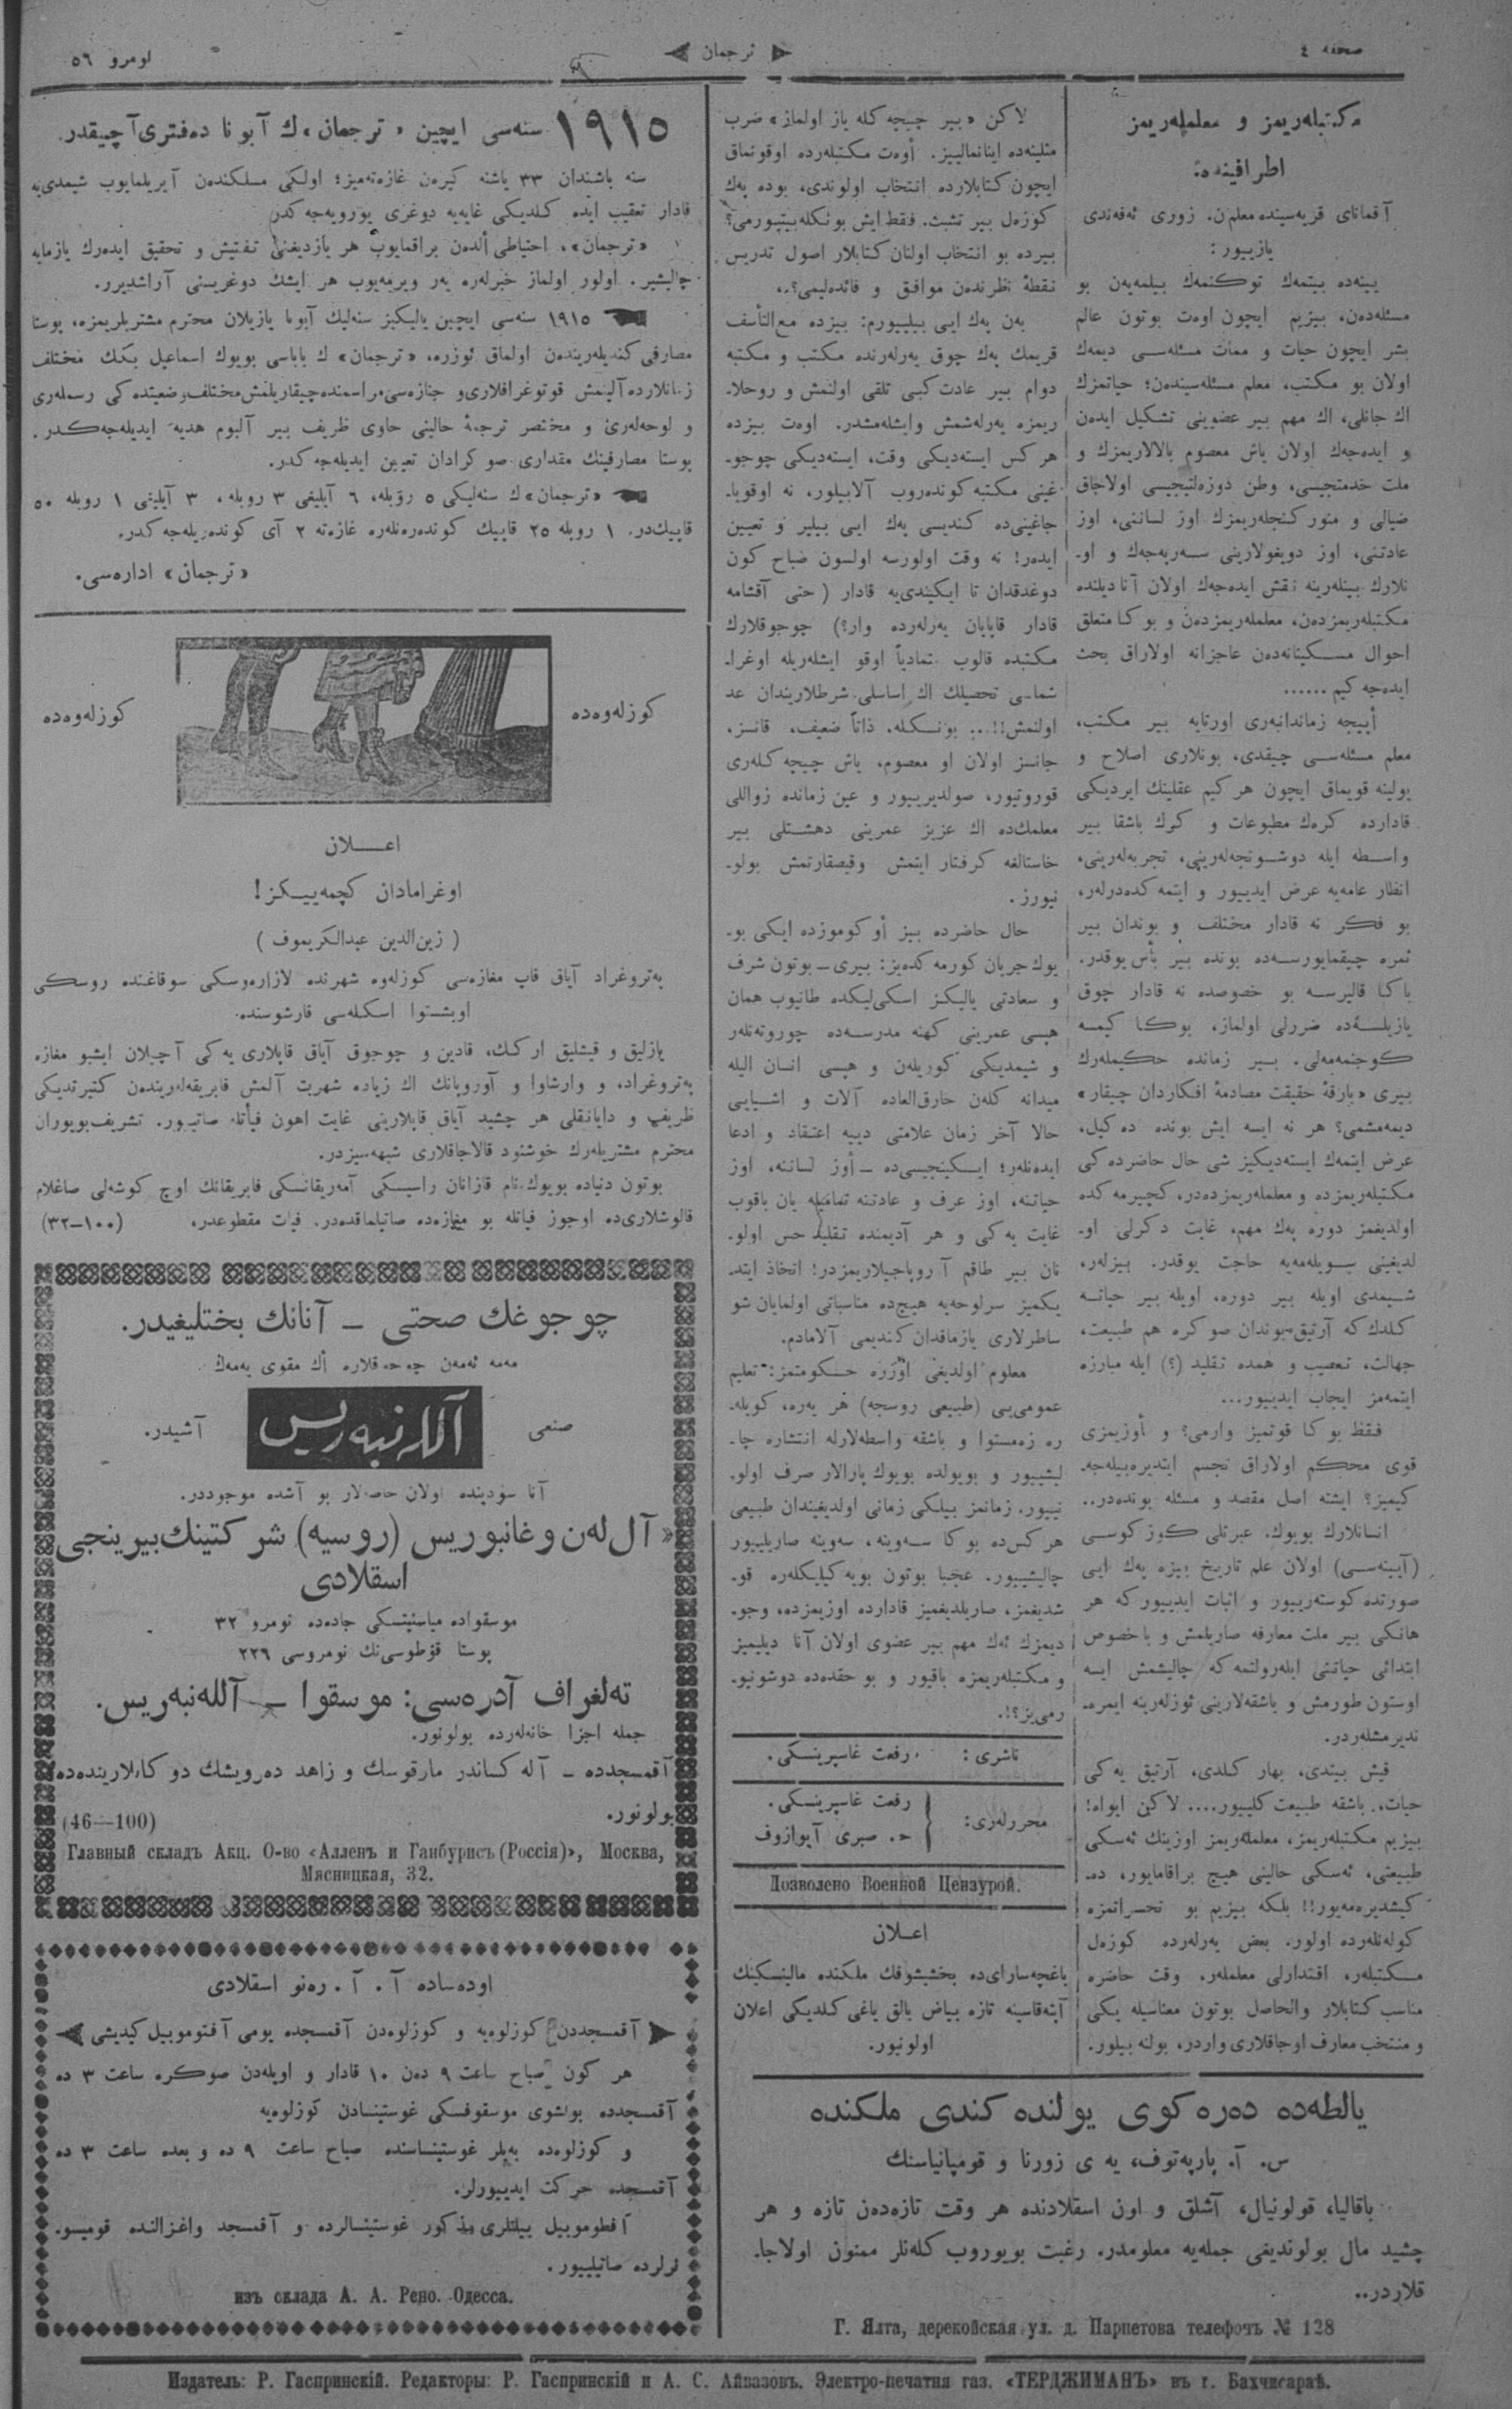 صحفه ٤
ترجمان
نومرو ٥٦
مكتبله‌ريمز و معلمله‌ريمز
اطرافينده:
آقمانای قريه‌سينده معلم‌ن. زوری ئه‌فه‌ندی
يازييور:
يينه‌ده بيتمه‌ك توكنمه‌ك بيلمه‌يه‌ن بو
مسئله‌دن، بيزيم ايچون اوه‌ت بوتون عالم
بشر ايچون حيات و ممات مسئله‌ســی ديمه‌ك
اولان بو مكتب، معلم مسئله‌سيندن؛ حياتمزك
اك جانلی، اك مهم بير عضوينی تشكيل ايدن
و ايده‌جه‌ك اولان ياش معصوم بالالاريمزك و
ملت خدمتجيسی، وطن دوزه‌لتيجيسی اولاجاق
ضيالی و منور كنجله‌ريمزك اوز لساننی، اوز
عادتنی، اوز دويغولارينی ســه‌ربه‌جه‌ك و او-
نلارك بينله‌رينه نقش ايده‌جه‌ك اولان آنا ديلنده
مكتبله‌ريمزدن، معلمله‌ريمزدن و بوكا متعلق
احوال مســكينانه‌دن عاجزانه اولاراق بحث
ايده‌جه‌كيم ......
أپيجه زماندانبه‌ری اورتايه بير مكتب،
معلم مسئله‌ســی چيقدی، بونلاری اصلاح و
يولينه قويماق ايچون هر كيم عقلينك ايرديكی
قادارده كره‌ك مطبوعات و كرك باشقا بير
واســطه ايله دوشــونجه‌له‌رينی، تجربه‌له‌رينی،
انظار عامه‌يه عرض ايدييور و ايتمه‌كده‌درله‌ر،
بو فكر نه قادار مختلف و بوندان بير
ثمره چيقمايورســه‌ده بونده بير بأس يوقدر.
باكا قاليرســه بو خصوصده نه قادار چوق
يازيلســه‌ده ضررلی اولماز، بوكــا كيمسه
كوجنمه‌مه‌لی. بــير زمانده حكيمله‌رك
بيری «بارقۀ حقيقت مصادمۀ افكاردان چيقار»
ديمه‌مشمی؟ هر نه ايسه ايش بونده ده‌كيل،
عرض ايتمه‌ك ايسته‌ديكيز شی حال حاضرده‌كی
مكتبله‌ريمزده و معلمله‌ريمزده‌در، كچيرمه‌كده
اولديغمز دوره پك مهم، غايت دكرلی او-
لديغينی ســويله‌مه‌يه حاجت يوقدر. بيزله‌ر،
شــيمدی اويله بير دوره، اويله بير حياتــه
كلدك كه آرتيق بوندان صوكره هم طبيعت،
جهالت، تعصيب و همده تقليد (؟) ايله مبارزه
ايتمه‌مز ايجاب ايدييور...
فقط بوكا قوتميز وارمی؟ و أوزيمزی
قوی محكم اولاراق تجسم ايتديره‌بيله‌جه-
كيميز؟ ايشته اصل مقصد و مسئله بونده‌در..
انسانلارك بويوك. عبرتلی كــوزكوســی
(آيينه‌ســی) اولان علم تاريخ بيزه پك ايی
صورتده كوسته‌رييور و اثبات ايدييور كه هر
هانكی بير ملت معارفه صاريلمش و باخصوص
ابتدائی حياتنی ايله‌رولتمه‌كه چاليشمش ايسه
اوستون طورمش و باشقه‌لارينی ئوزله‌رينه ايمره-
نديرمشله‌ردر.
قيش بيتدی، بهار كلدی، آرتيق يه‌كی
حيات، باشقه طبيعت كلييور.... لاكن ايواه!
بيزيم مكتبله‌ريمز، معلمله‌ريمز اوزينك ئه‌سكی
طبيعتی، ئه‌سكی حالينی هيچ براقمايور، ده-
كيشديره‌مه‌يور!! بلكه بيزيم بو تحــراتمزه
كوله‌نله‌رده اولور. بعض يه‌رله‌رده كوزه‌ل
مكتبله‌ر، اقتدارلی معلمله‌ر، وقت حاضره
مناسب كتابلار والحاصل بوتون معناسيله يكی
و منتخب معارف اوجاقلاری واردر، بولنه بيلور.
لاكن «بير چيچه‌كله ياز اولماز» ضرب
مثلينه‌ده اينانماليیز. أوه‌ت مكتبله‌رده اوقوتماق
ايچون كتابلارده انتخاب اولوندی، بوده پك
كوزه‌ل بير تشبث. فقط ايش بونكله بيتيورمی؟
بيرده بو انتخاب اولنان كتابلار اصول تدريس
نقطۀ نظرندن موافق و فائده‌ليمی؟.
بن پك ايی بيلييورم: بيزده مع‌التأسف
قريمك پك چوق يه‌رله‌رنده مكتب و مكتبه
دوام بير عادت كبی تلقی اولنمش و روحلا-
ريمزه يه‌رله‌شمش وايشله‌مشدر. اوه‌ت بيزده
هركس ايسته‌ديكی وقت، ايسته‌ديكی چوجو-
غينی مكتبه كونده‌روب آلابيلور، نه اوقويا-
جاغينی‌ده كنديسی پك ايی بيلير و تعيين
ايده‌ر! نه وقت اولورسه اولسون صباح كون
دوغدقدان تا ايكيندی‌يه قادار (حتی آقشامه
قادار قاپايان يه‌رله‌رده وار؟) چوجوقلارك
مكتبده قالوب تمادياً اوقو ايشله‌ريله اوغرا-
شماسی تحصيلك اك اساسلی شرطلاريندان عد
اولنمش!!... بونــكله. ذاتاً ضعيف، قانسز،
جانسز اولان او معصوم، ياش چيچه‌كله‌ری
قوروتيور، صولديرييور و عين زمانده زواللی
معلمك‌ده اك عزيز عمرينی دهشــتلی بير
خاستالغه كرفتار ايتمش وقيصقارتمش بولو-
نيورز.
حال حاضرده بيز أوكوموزده ايكی بو-
يوك جريان كورمه‌كده‌يز: بيری ــ بوتون شرف
و سعادتی يالیكز اسكی‌ليكده طانيوب همان
هپسی عمرينی كهنه مدرســه‌ده چوروته‌نله‌ر
و شيمديكی كوريله‌ن و هپسی انسان اليله
ميدانه كله‌ن خارق‌العاده آلات و اشــيايی
حالا آخر زمان علامتی دييه اعتقاد و ادعا
ايده‌نله‌ر؛ ايــكينجيسی‌ده ــ أوز لساننه، اوز
حياتنه، اوز عرف و عادتنه تماميله يان باقوب
غايت يه‌كی و هر آديمنده تقليد حس اولو-
نان بير طاقم آوروپاجيلاريمزدر! اتخاذ ايتد-
يكميز سرلوحه‌يه هيچ‌ده مناسباتی اولمايان شو
ساطرلاری يازماقدان كنديمی آلامادم.
معلوم اولديغی اوزره حــكومتمز: تعليم
عمومی‌يی (طبيعی روسجه) هر يه‌ره، كويله-
ره زه‌مستوا و باشقه واسطه‌لارله انتشاره چا-
ليشييور و بويولده بويوك پارالار صرف اولو-
نيور. زمانمز بيلكی زمانی اولديغيندان طبيعی
هركس‌ده بوكا ســه‌وينه، سه‌وينه صاريلييور
چاليشييور. عجبا بوتون بويه‌كيليكله‌ره قو-
شديغمز، صاريلديغميز قادارده اوزيمزده، وجو-
ديمزك ئه‌ك مهم بير عضوی اولان آنا ديليميز
و مكتبله‌ريمزه باقيور و بو حقده‌ده دوشونيو-
رمی‌يز؟!.
ناشری: رفعت غاسپرينسكی.
محررلری: رفعت غاسپرينسكی.
ح. صبری آيوازوف
Дозволено Военной Цензурой.
اعــلان
باغچه‌سرای‌ده بخشيشوفك ملكنده مالينسكينك
آپته‌قاسينه تازه بياض بالق ياغی كلديكی اعلان
اولونيور.
يالطه‌ده ده‌ره‌كوی يولنده كندی ملكنده
س. آ. پارپه‌توف، يه ی زورنا و قومپانياسنك
باقاليا، قولونيال، آشلق و اون اسقلادنده هر وقت تازه‌دن تازه و هر
چشيد مال بولونديغی جمله‌يه معلومدر. رغبت بويوروب كله‌نلر ممنون اولاجا-
قلاردر..
Г. Ялта, дерекойская ул. д. Парпетова телефонъ № 128
١٩١٥ سنه‌سی ايچين «ترجمان»ك آبونا ده‌فتری آچيقدر.
سنه باشندان ٣٣ ياشنه كيره‌ن غازه‌ته‌ميز؛ اولكی مسلكندن آيريلمايوب شيمدی‌يه
قادار تعقيب ايده كلديكی غايه‌يه دوغری يورويه‌جه‌كدر.
«ترجمان»، احتياطی ألدن براقمايوب هر يازديغنی تفتيش و تحقيق ايده‌رك يازمايه
چاليشير. اولور اولماز خبرله‌ره يه‌ر ويرمه‌يوب هر ايشك دوغريسنی آراشديرر.
١٩١٥ سنه‌سی ايچين ياليكيز سنه‌ليك آبونا يازيلان محترم مشتريلريمزه، پوستا
مصارفی كنديله‌ريندن اولماق ئوزره، «ترجمان»ك باباسی بويوك اسماعيل بكك مختلف
زمانلارده آلينمش فوتوغرافلاری و جنازه‌سی مراسمنده چيقاريلمش مختلف وضعيتده‌كی رسمله‌ری
و لوحه‌له‌ری و مختصر ترجمۀ حالينی حاوی ظريف بير آلبوم هديه ايديله‌جه‌كدر.
پوستا مصارفينك مقداری صوكرادان تعيين ايديله‌جه‌كدر.
«ترجمان»ك سنه‌ليكی ٥ روبله، ٦ آيليغی ٣ روبله، ٣ آيليغی ١ روبله ٥٠
قاپيك‌در. ١ روبله ٢٥ قاپيك كونده‌ره‌نله‌ره غازه‌ته ٢ آی كونده‌ريله‌جه‌كدر.
«ترجمان» اداره‌سی.
كوزله‌وه‌ده
كوزله‌وه‌ده
اعــــلان
اوغرامادان كچمه‌ييــكز!
( زين‌الدين عبدالكريموف )
په‌تروغراد آياق قاپ مغازه‌سی كوزله‌وه شهرنده لازاره‌وسكی سوقاغنده روسكی
اوبشتوا اسكله‌سی قارشوسنده.
يازليق و قيشليق اركك، قادين و چوجوق آياق قاپلاری يه‌كی آچيلان ايشبو مغازه
په‌تروغراد، و وارشاوا و آوروپانك اك زياده شهرت آلمش فابريقه‌له‌ريندن كتيرتديكی
ظريف و داياناقلی هر چشيد آياق قاپلارينی غايت اهون فيأتله صاتيور. تشريف بويوران
محترم مشتريله‌رك خوشنود قالاجاقلاری شبهه‌سيزدر.
بوتون دنياده بويوك نام قازانان راسيــكی آمه‌ريقانسكی فابريقانك اوچ كوشه‌لی صاغلام
قالوشلاری‌ده اوجوز فياتله بو مغازه‌ده صاتيلماقده‌در. فيأت مقطوعدر. (٣٢–١٠٠)
چوجوغك صحتی ــ آنانك بختليغيدر.
ممه ئه‌مه‌ن چوجوقلاره اك مقوی يه‌مه‌ك
صنعی
آللەنبەریس
آشيدر.
آنا سودينده اولان خاصه‌لار بو آشده موجوددر.
«آل‌لەن وغانبوریس (روسيه) شركتينك بيرينجی
اسقلادی
موسقواده مياسنيتسكی جاده‌ده نومرو ٣٢
پوستا قوطوسی‌نك نومروسی ٢٢٦
تەلغراف آدرەسی: موسقوا ــ آللەنبەریس.
جمله اجزا خانه‌له‌رده بولونور.
آقمسجدده ــ آله‌كساندر مارقوسك و زاهد ده‌رويشك دوكانلارينده‌ده
بولونور. (46—100)
Главный складъ Акц. О-во «Алленъ и Ганбурисъ (Россія)», Москва,
Мясницкая, 32.
اوده‌ساده آ. آ. ره‌نو اسقلادی
آقمسجددن كوزلوه‌يه و كوزلوه‌دن آقمسجده يومی آفتوموبيل كيديشی
هر كون صباح ساعت ٩ ده‌ن ١٠ قادار و اويله‌دن صوكره ساعت ٣ ده
آقمسجدده بولشوی موسقوفسكی غوستينسادن كوزلوه‌يه
و كوزلوه‌ده به‌يلر غوستينساسنده صباح ساعت ٩ ده و بعده ساعت ٣ ده
آقمسجده حركت ايدييورلر.
آفطوموبيل بيلتلری مذكور غوستينسالرده و آقمسجد واغزالنده قوميسو-
نرلرده صاتيلييور.
изъ склада А. А. Рено. Одесса.
Издатель: Р. Гаспринскій. Редакторы: Р. Гаспринскій и А. С. Айвазовъ. Электро-печатня газ. «ТЕРДЖИМАНЪ» въ г. Бахчисараѣ.